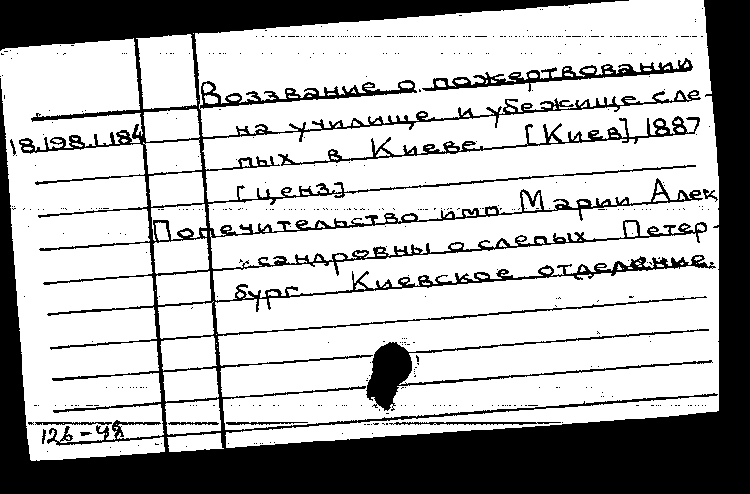 Воззвание о пожертвовании
18.198.1.184 на училище и убежище сле-
пых в Киеве. [Киев], 1887
[ценз].
Попечительство имп. Марии Алек
сандровны о слепых. Петер-
бург. Киевское отделение.
126-48